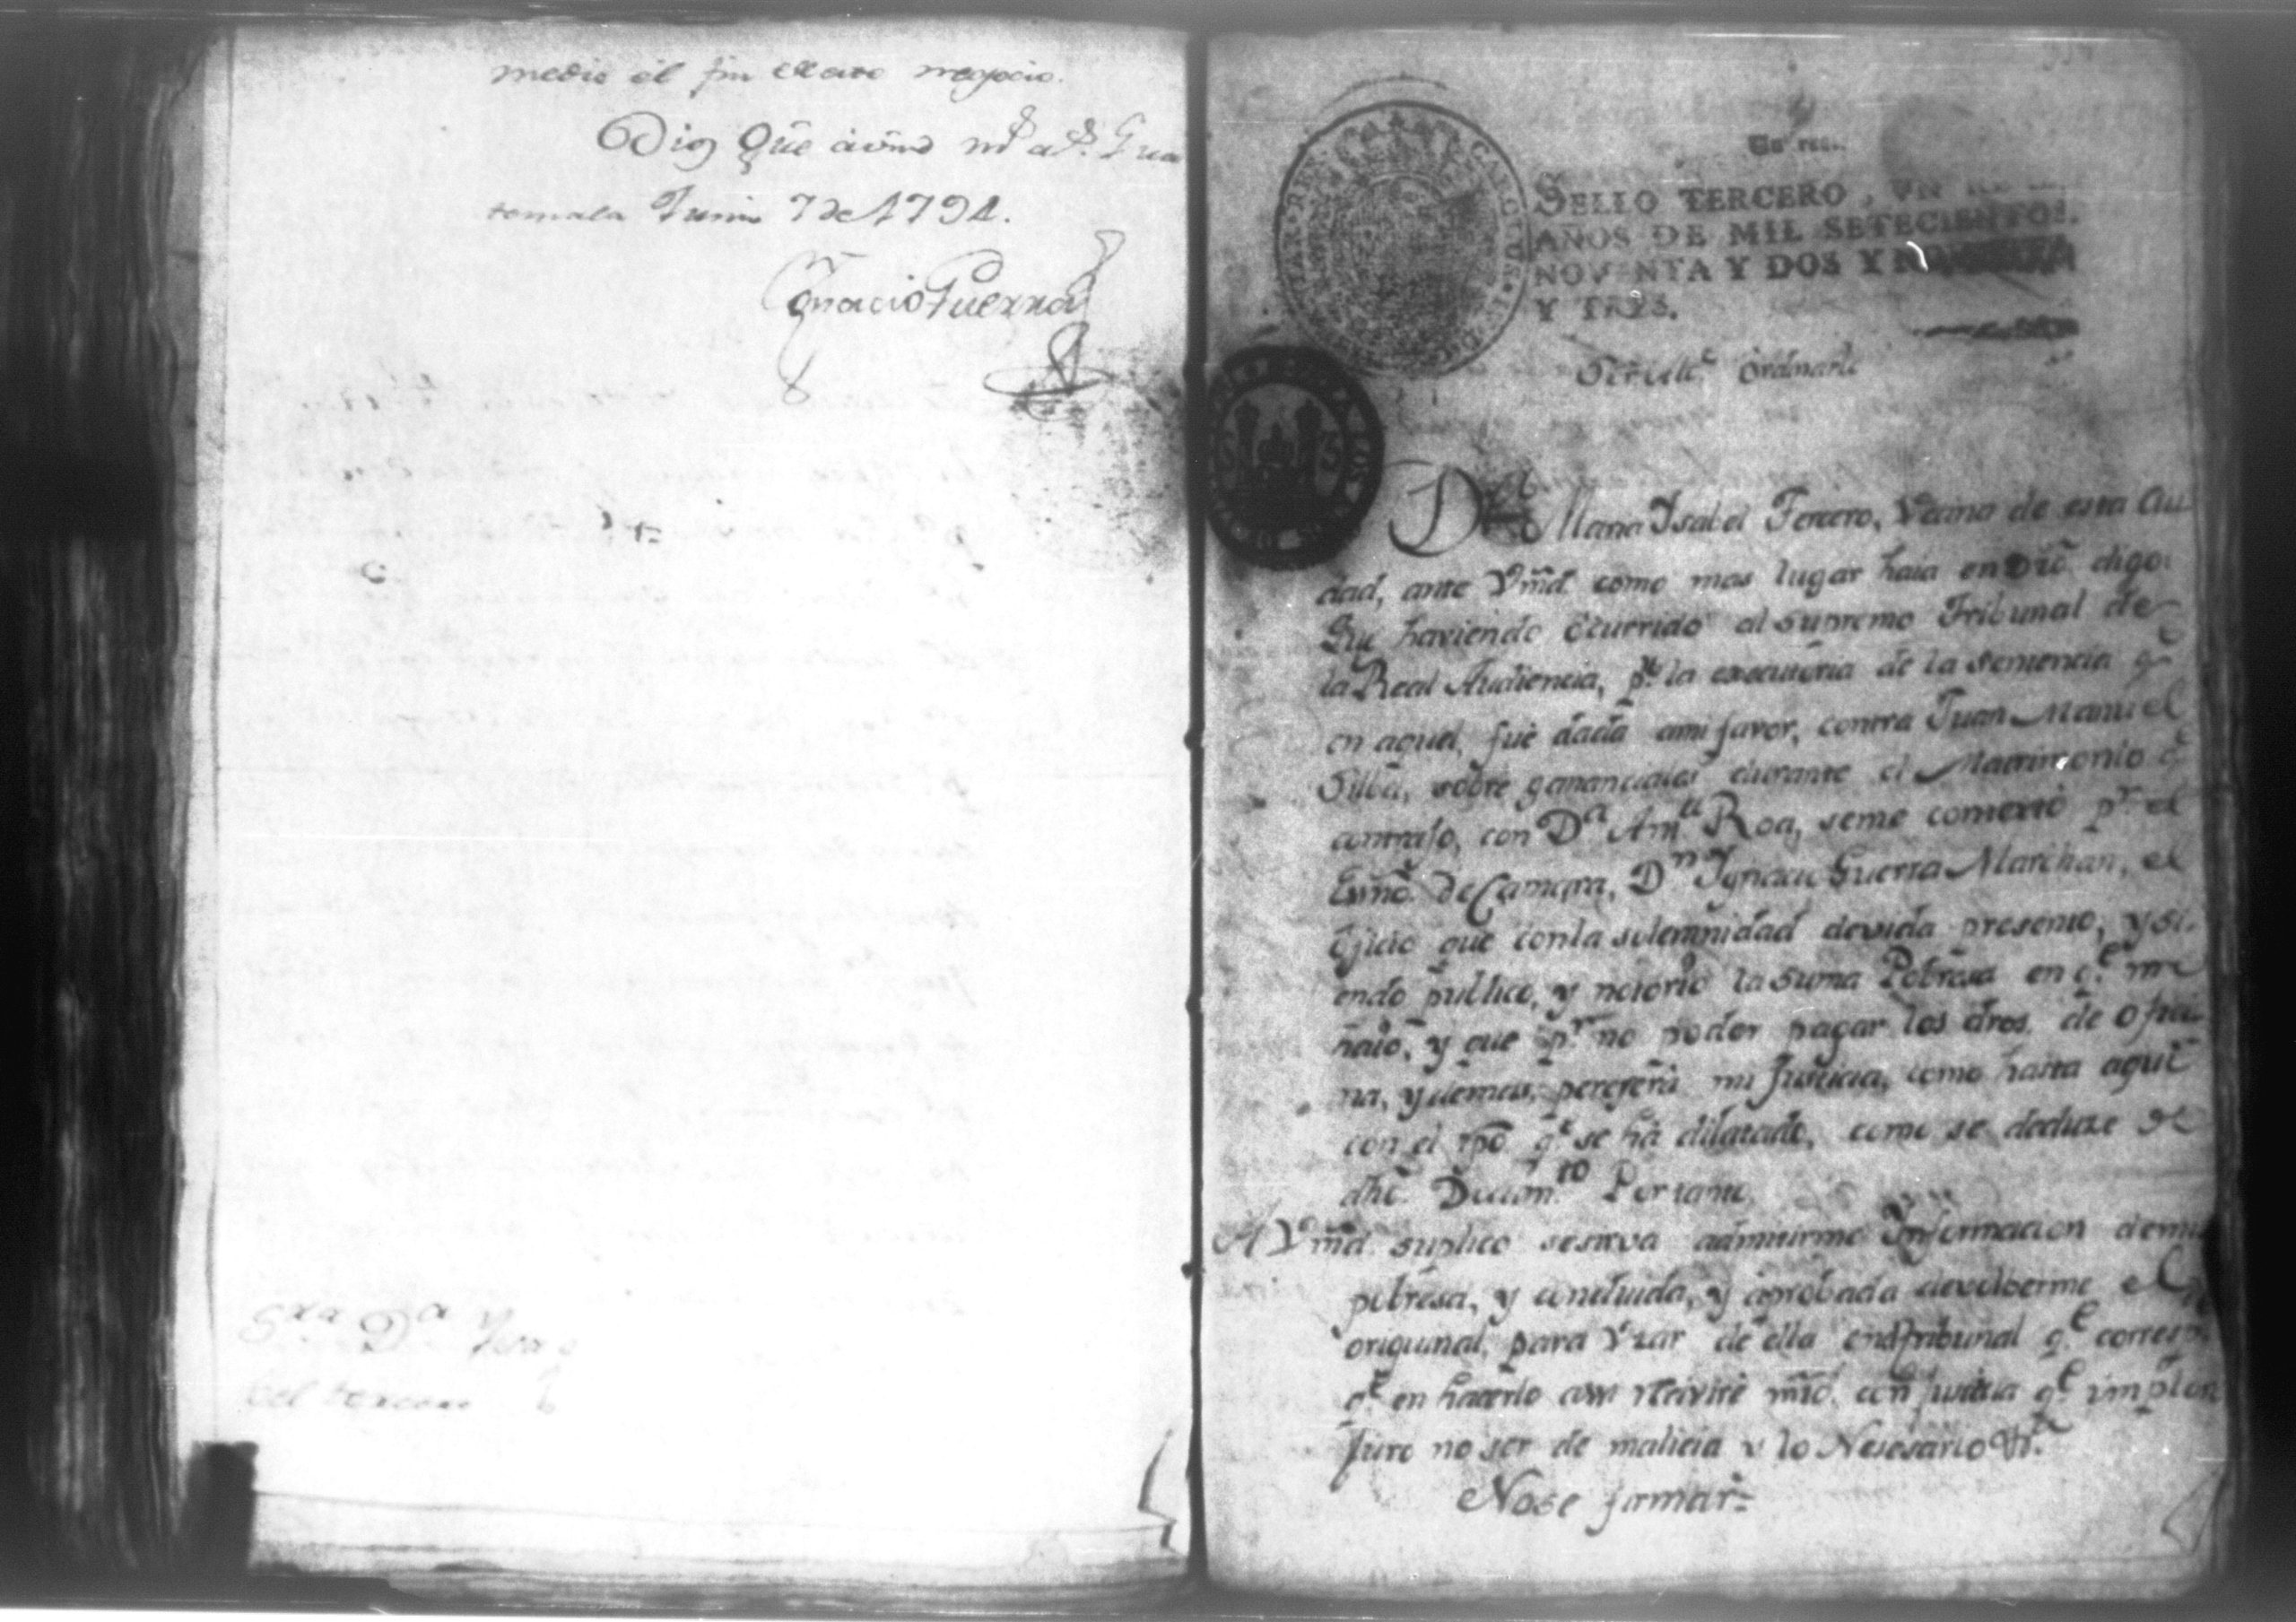 medio el fin de este negocio.
Dios Gûe a vmd ms. as. Gua
temala Junio 7 de 1794.
Ignacio Guerra
Sra Da Ysa
bel tercero
Un real.
SELLO TERCERO, UN REAL
AÑOS DE MIL SETECIENTOS
NOVENTA Y DOS Y NOVENTA
Y TRES.
Ordinario
Da. Maria Ysabel Tercero, Vecina de esta Ciu
dad, ante Vmd. como mas lugar haia en dro. digo:
Que haviendo ocurrido al Supremo Tribunal de
la Real Audiencia, pr. la executoria de la sentencia qe
en aquel, fue dada ami favor, contra Juan Manuel
Silba, sobre gananciales durante el Matrimonio qe
contrajo, con Da Anta Roa, seme contextó pr. el
Esnô. de Camara, Dn Ygnacio Guerra Marchan, el
Ofico que conla solemnidad devida presento; y si-
endo publico, y notorio la suma Pobresa en qe. me
hallo, y que pr. no poder pagar los dros. de ofici-
na, y demas, peresera mi Justicia, como hasta aqui
con el tpô qe se há dilatado, como se deduze de
dhô. Docum.to Por tanto,
A Vmd. suplico sesirva admitirme Informacion demi
pobresa, y concluida, y aprobada devolberme el
original, para Vzar de ella en el tribunal qe corresp.
qe en hacerlo assi recivire mrd. con justicia qe. imploro
Juro no ser de malicia y lo Nesesario Va.
Nose firmar=